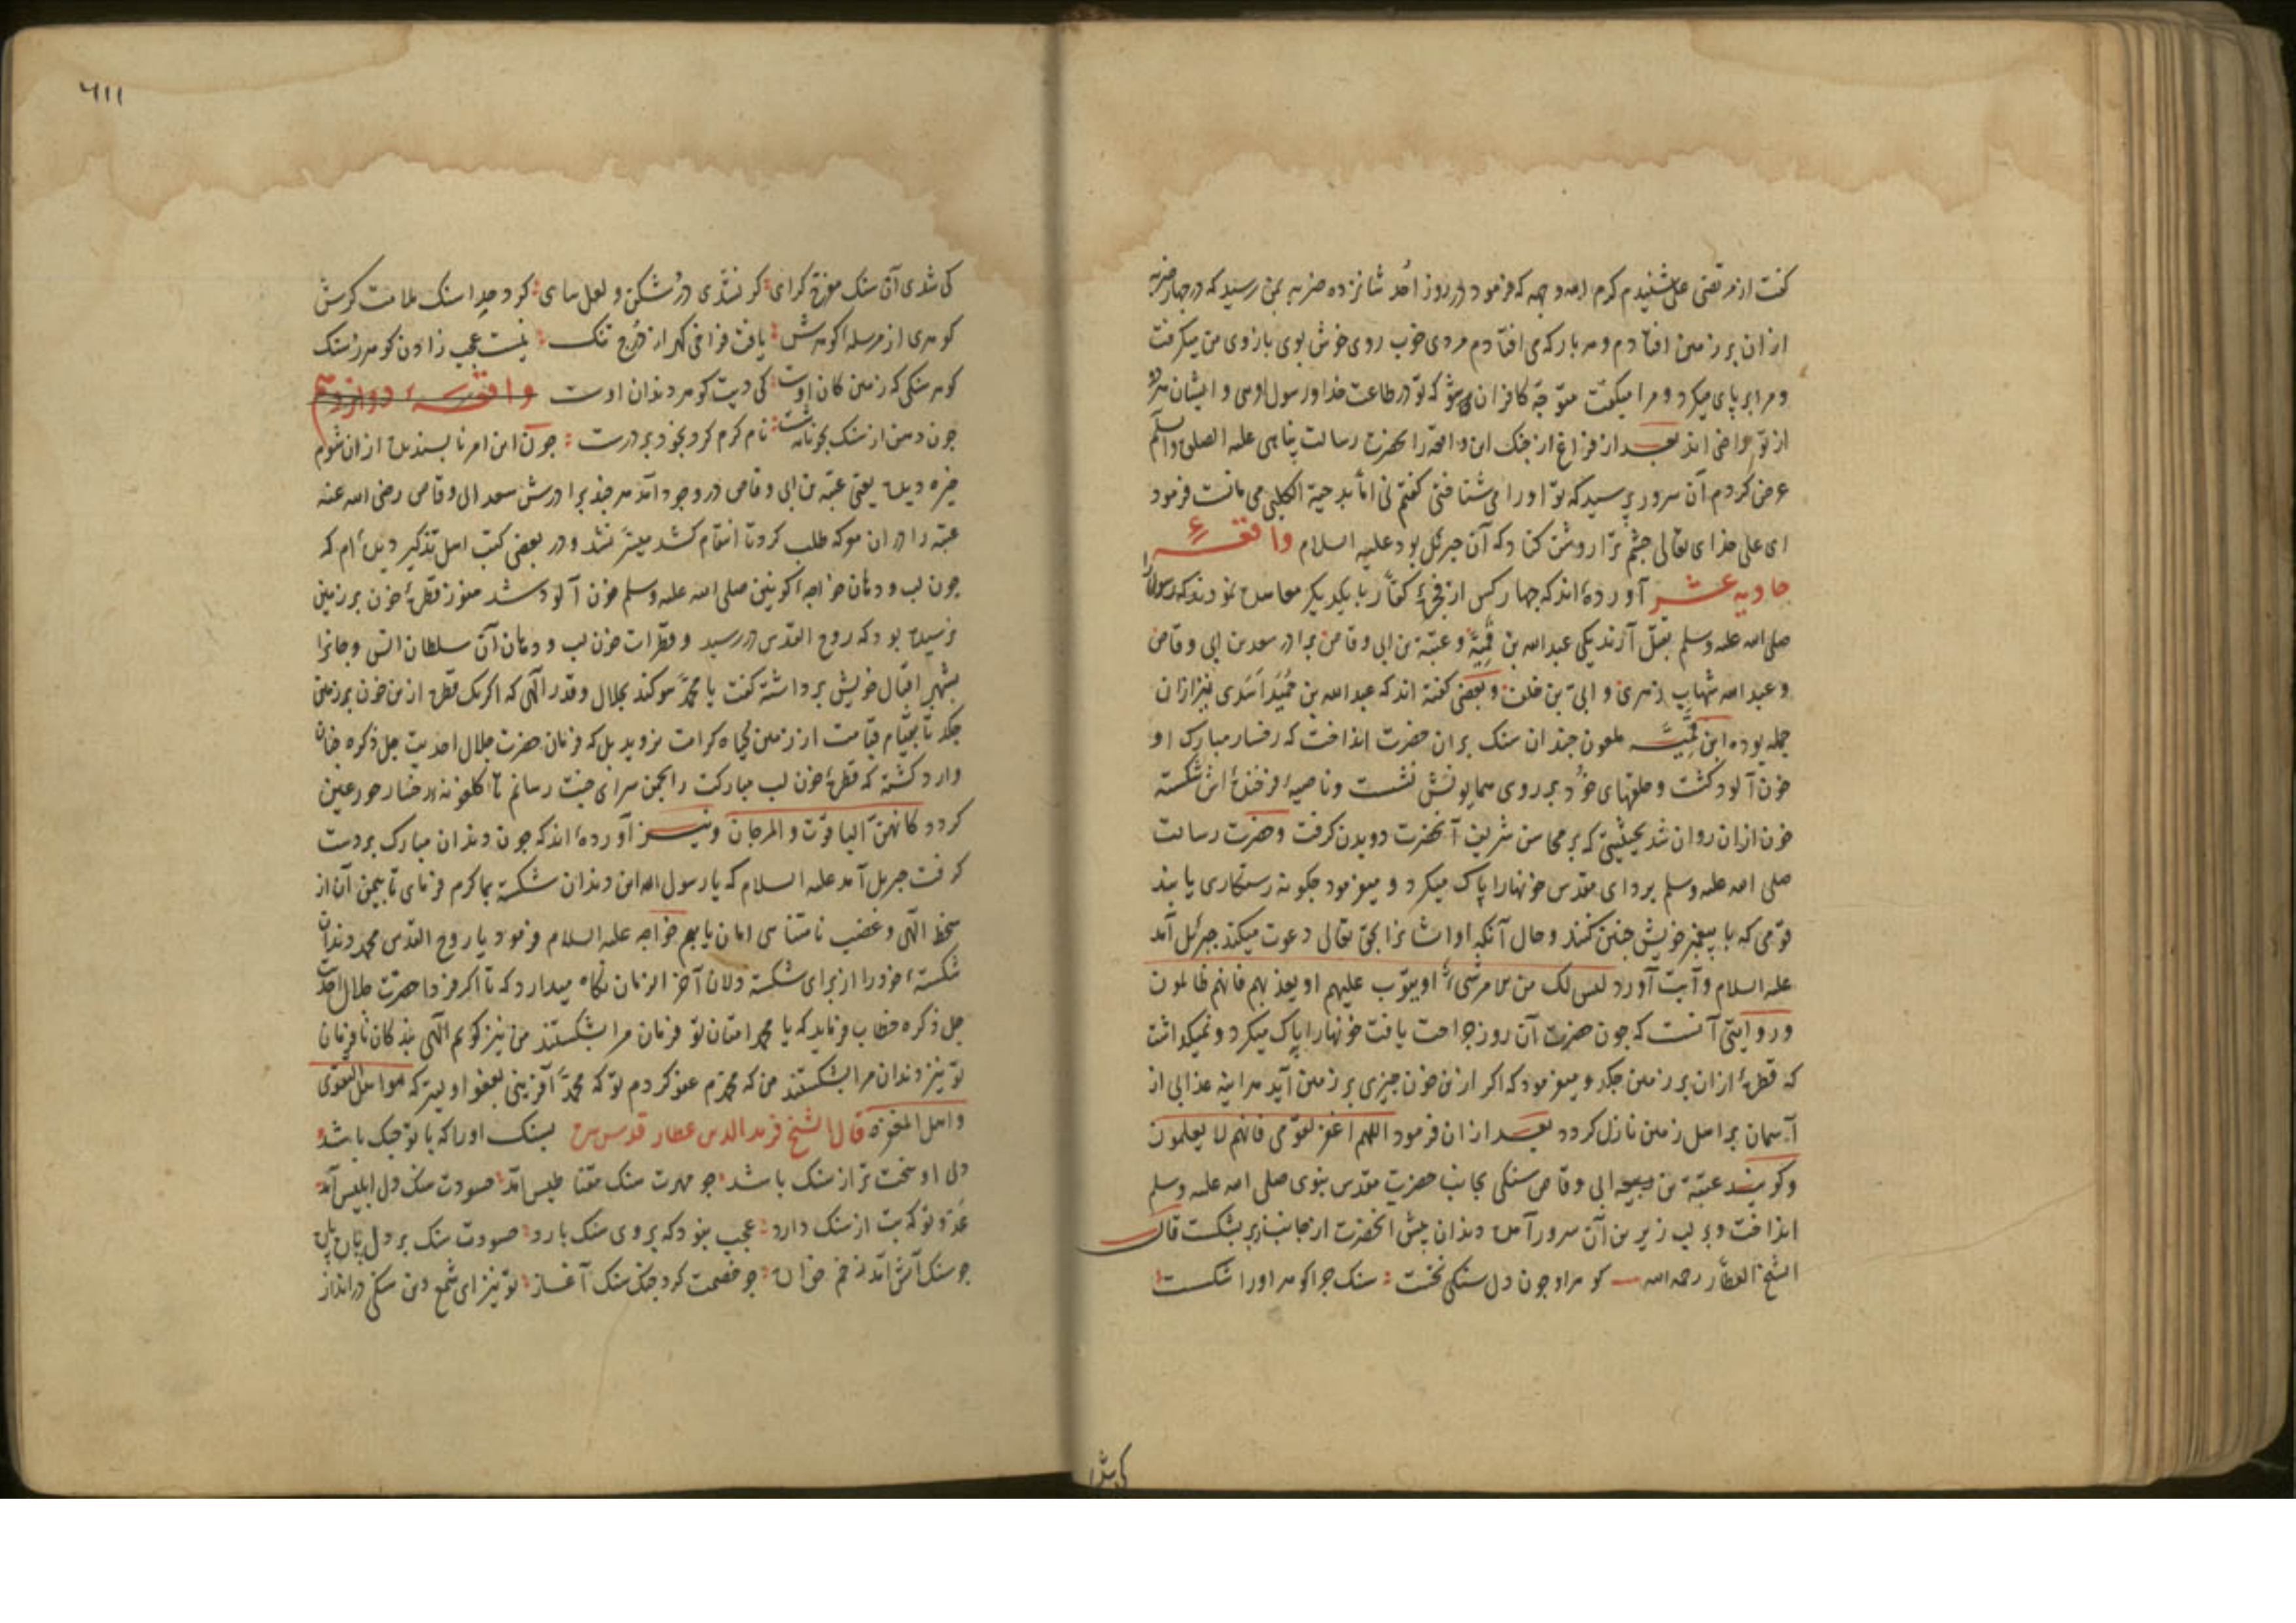 كفت از مرتضى على شنيدم كرم الله وجهه كه فرمود در روز اُحد شانزده ضربه بمن رسيد كه در چهار ضربه
ازان بر زمين افتادم و هر بار كه مى افتادم مردى خوب روى خوش بوى بازوى من ميكرفت
و مرا بر پاى ميكرد و مرا ميكفت متوجّه كافران شو كه تو در طاعت خدا و رسول اوىى و ايشان هر دو
از تو راضى اند بعد از فراغ از جنك اين واقعه را بحضرت رسالت پناهى عليه الصلوة والسلم
عرض كردم آن سرور پرسيد كه تو او را مى شناختى كفتم نى اما بدحية الكلبى مى مانست فرمود
اى على خداى تعالى چشم ترا روشن كناد كه آن جبرئل بود عليه السلام واقعهٔ
حاديه عشر آورده اند كه چهار كس از فجرهٔ كفّار با يكديكر معاهده نمودند كه رسول را
صلى الله عليه وسلم بقتل آرند يكى عبد الله بن قميّة و عتبة بن ابى وقاص برادر سعد بن ابى وقاص
و عبد الله شهاب زهرى و ابىّ بن خلف و بعضى كفته اند كه عبد الله بن حُمَيْد اَسَدى نيز ازان
جمله بوده ابن قميّه ملعون چندان سنك بران حضرت انداخت كه رخسار مبارك او
خون آلود كشت و حلقهاى خُود بر روى همايونش نشست و ناصيهٔ فرخندهٔ اش شكسته
خون ازان روان شد بحيثيتى كه بر محاسن شريف آنحضرت دويدن كرفت و حضرت رسالت
صلى الله عليه وسلم برداى مقدّس خونها را پاك ميكرد و ميفرمود چكونه رستكارى يابند
قومى كه با پيغمبر خويش چنين كنند و حال آنكه او ايشانرا بحق تعالى دعوت ميكند جبرئل آمد
عليه السلام و آيت آورد ليس لك من الامر شىء او يتوب عليهم او يعذبهم فانهم ظالمون
و روايتى آنست كه چون حضرت آن روز جراحت يافت خونها را پاك ميكرد و نميكذاشت
كه قطرهٔ ازان بر زمين چكد و ميفرمود كه اكر ازين خون چيزى بر زمين آيد هرآينه عذابى از
آسمان بر اهل زمين نازل كردد بعد ازان فرمود اللهم اغفر لقومى فانهم لا يعلمون
و كويند عتبة بن ابى وقاص سنكى بجانب حضرت مقدس نبوى صلى الله عليه وسلم
انداخت و بر لب زيرين آن سرور آمده دندان پيش آنحضرت از جانب زير بشكست قال
الشيخ العطّار رحمه الله كوهر او چون دل سنكى نخست سنك چرا كوهر او را شكست
كى شدى
٢١١
كى شدى آن سنك مفرّح كراى كر نشدى دُرشكن و لعل ساى كرد جدا سنك ملامت كرش
كوهرى از مرسله كوهرش يافت فراخى كهر از دُرج تنك نيست عجب زادن كوهر ز سنك
كوهر سنكى كه زمين كان اوست كى ديت كوهر دندان اوست واقعهٔ دوازدهم
چون دهن از سنك بخونابه شست نام كرم كرد بخود بر درست چون اين امر ناپسنديده ازان شوم
خيره ديده يعنى عتبه بن ابى وقاص در وجود آمد هر چند برادرش سعد ابى وقاص رضى الله عنه
عتبه را در ان معركه طلب كرد تا انتقام كشد ميسّر نشد و در بعضى كتب اهل تذكير ديدهٔ ام كه
چون لب و دهان خواجه كونين صلى الله عليه وسلم خون آلود شد هنوز قطرهٔ خون بر زمين
نرسيده بود كه روح القدس در رسيد و قطرات خون لب و دهان آن سلطان انس و جانرا
بشهپر اقبال خويش برداشته كفت يا محمد سوكند بجلال و قدر الهى كه اكر يك قطره ازين خون بر زمين
چكد تا بقيام قيامت از زمين كياه كرامت نرويد بل كه فرمان حضرت جلال احديت جل ذكره چنان
وارد كشته كه قطرهٔ خون لب مباركت را بچمن سراى جنت رسانم تا كلغونه رخسار حور عين
كردد كانهنّ الياقوت والمرجان و نيز آورده اند كه چون دندان مبارك بر دست
كرفت جبريل آمد عليه السلام كه يا رسول الله اين دندان شكسته بما كرم فرماى تا بيمن آن از
سخط الهى و غضب نامتناهى امان يابيم خواجه عليه السلام فرمود يا روح القدس محمد دندان
شكستهٔ خود را از براى شكسته دلان آخر الزمان نكاه ميدارد كه تا اكر فردا حضرت جلال احديت
جل ذكره خطاب فرمايد كه يا محمد امتان تو فرمان مرا بشكستند من نيز كويم الهى بندكان نافرمان
تو نيز دندان مرا بشكستند من كه محمدم عفو كردم تو كه محمد آفرينى بعفو اوليتر كه هو اهل التقوى
واهل المغفرة قال الشيخ فريد الدين عطار قدس سره بسنك او را كه با تو جنك باشد
دلى او سخت تر از سنك باشد چو مهرت سنك مقناطيس آمد حسودت سنك دل ابليس آمد
عدو تو كه بت از سنك دارد عجب نبود كه بر وى سنك بارد حسودت سنك بر دل
چو سنك آتش آمد چو خصمت كرد جنك سنك آغاز تو نيز اى شمع دين سنكى درانداز